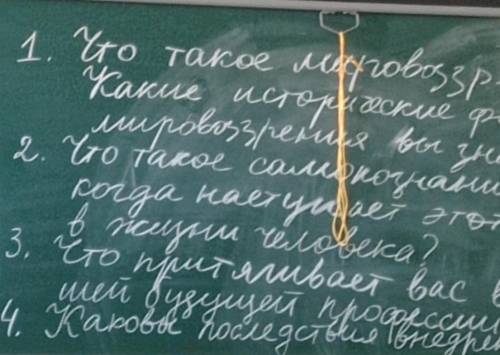 1. Что такое мировоззр
Какие исторические ф
мировоззрения вы зн
2. Что такое самопознани
когда наступает этот
в жизни человека?
3. Что притягивает вас в
шей будущей профессии
4. Каковы последствия внедрен